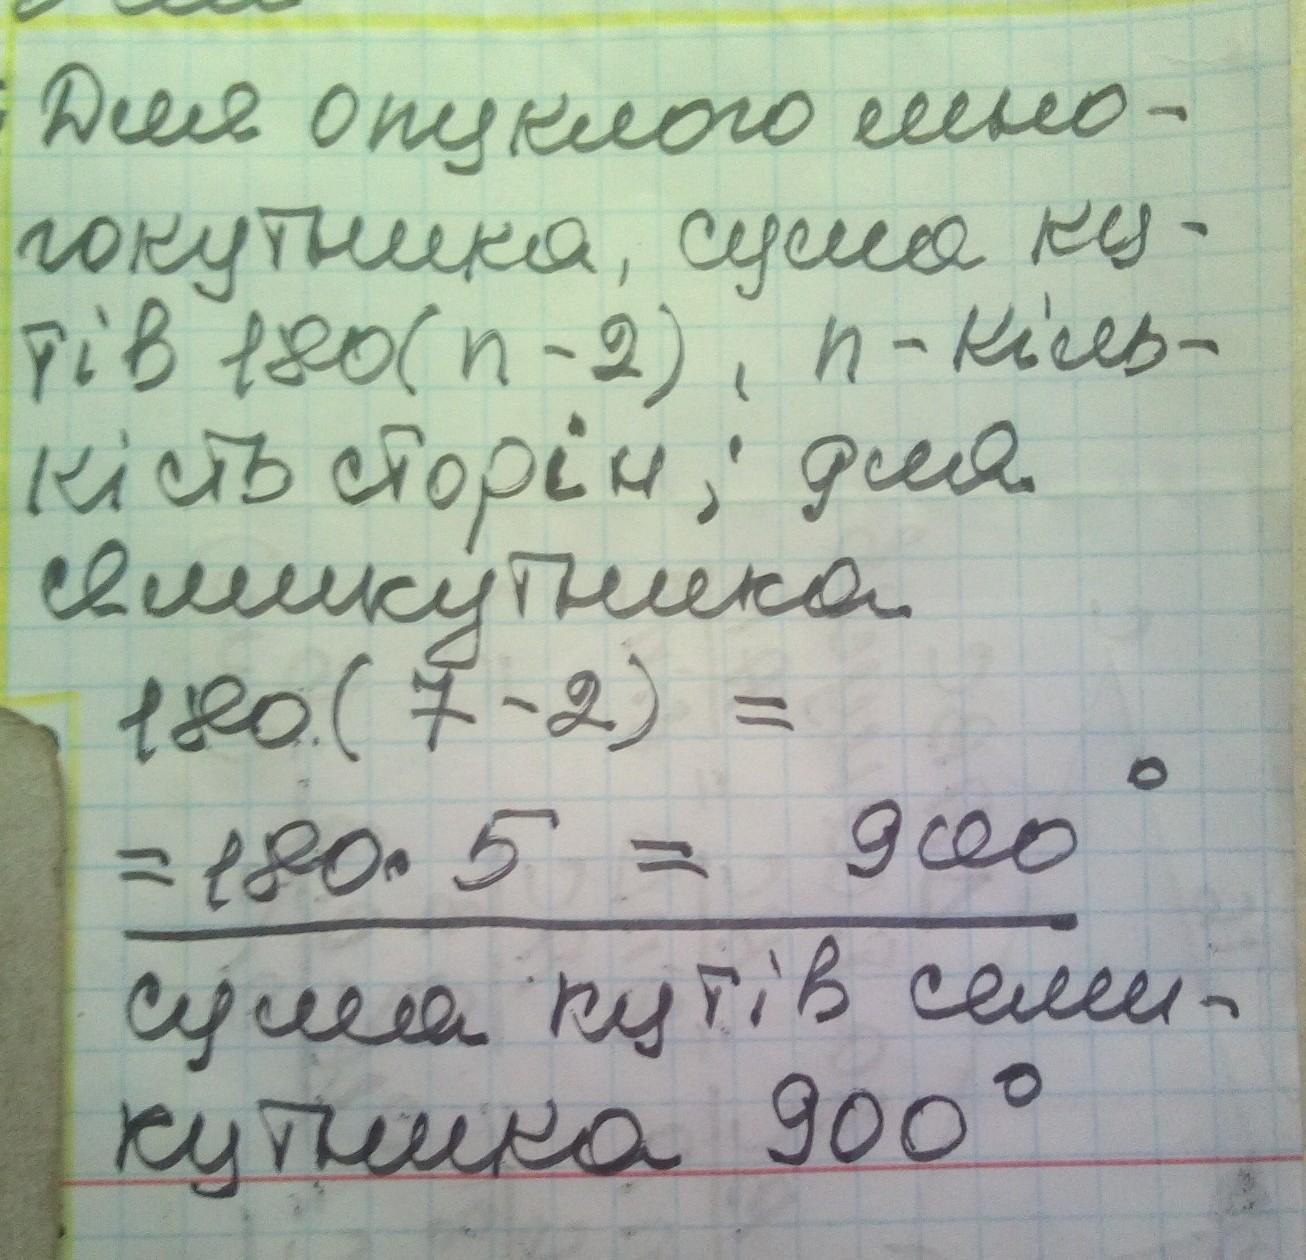 Для опуклого мно-
гокутника, сума ку-
тів 180(n-2), n-кіль-
кість сторін; для
семикутника
180·(7-2) =
=180·5 = 900°
сума кутів семи-
кутника 900°